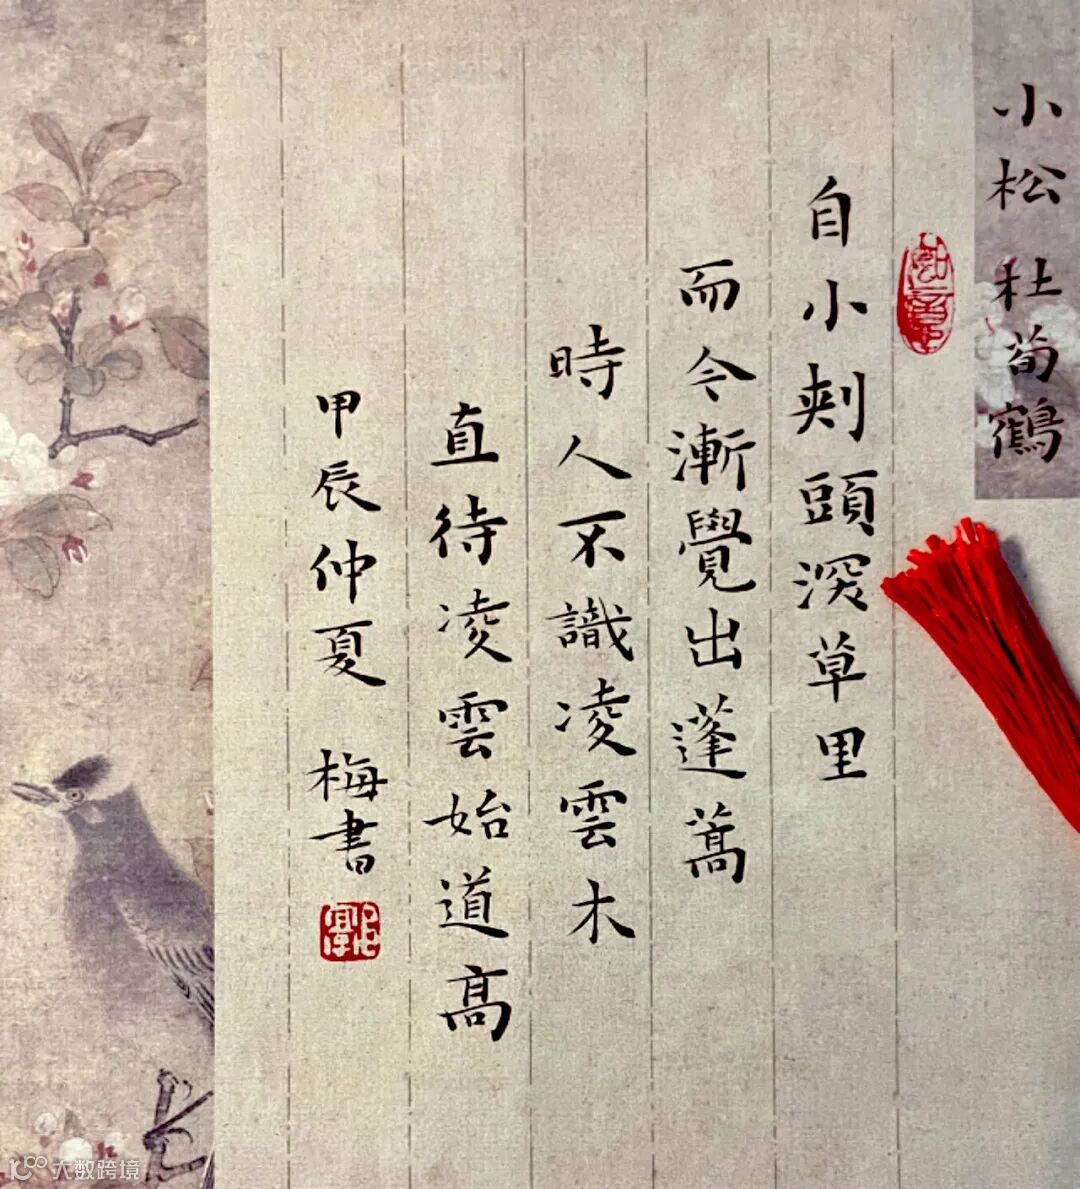 小松 杜荀鶴
自小刾頭深草里
而今漸覺出蓬蒿
時人不識凌雲木
直待凌雲始道高
甲辰仲夏 梅書
大数跨境